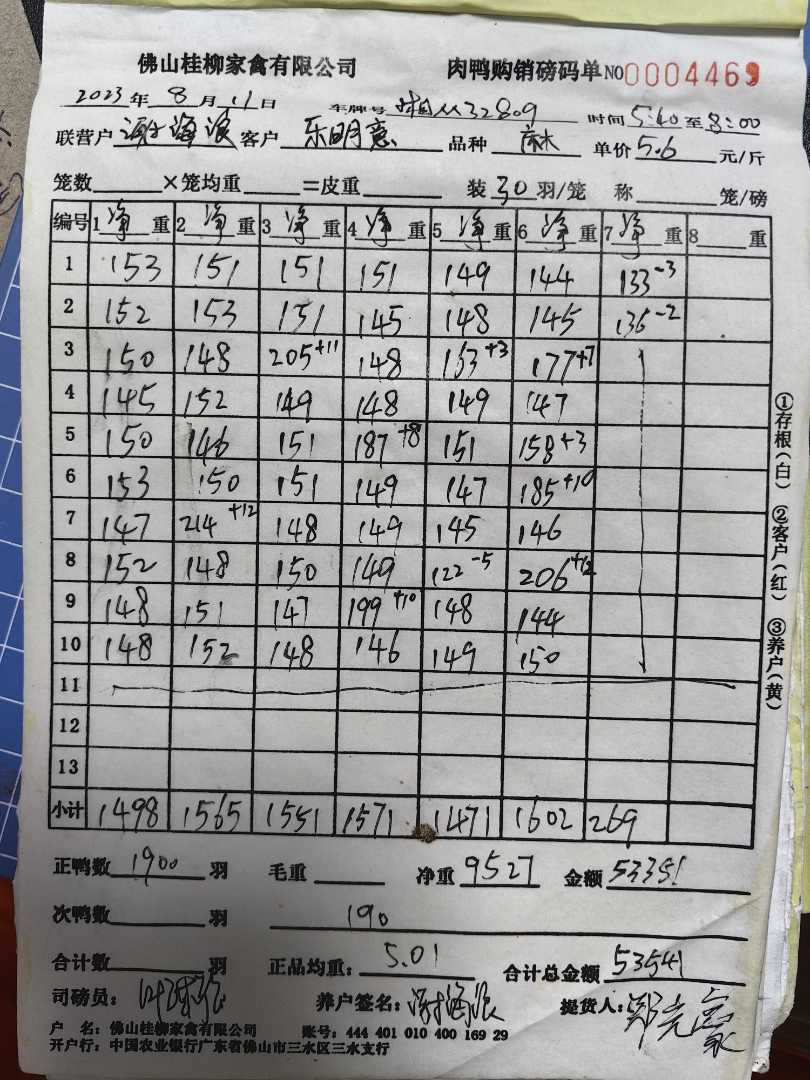 佛山桂柳家禽有限公司 肉鸭购销磅码单 NO0004469
2023年8月11日 车牌号 湘M32809 时间 5:40至8:00
联营户 海浪 客户 乐明意 品种 麻 单价5.6元/斤
笼数 ×笼均重 =皮重 装30羽/笼 称 笼/磅
编号 1净重 2净重 3净重 4净重 5净重 6净重 7净重 8 重
1 153 151 151 151 149 144 133-3
2 152 153 151 145 148 145 136-2
3 150 148 205+11 148 153+3 177+7
4 145 152 149 148 149 147
5 150 146 151 187+8 151 158+3
6 153 150 151 149 147 185+10
7 147 214+12 148 149 145 146
8 152 148 150 149 122-5 206+12
9 148 151 147 199+10 148 144
10 148 152 148 146 149 150
11
12
13
小计 1498 1565 1551 1571 1471 1602 269
正鸭数 1900 羽 毛重 净重 9527 金额 53351
次鸭数 羽 190
合计数 羽 正品均重: 5.01 合计总金额 53541
司磅员: 养户签名: 海浪 提货人: 郑
户 名: 佛山桂柳家禽有限公司 账号: 444 401 010 400 169 29
开户行: 中国农业银行广东省佛山市三水区三水支行
①存根(白) ②客户(红) ③养户(黄)